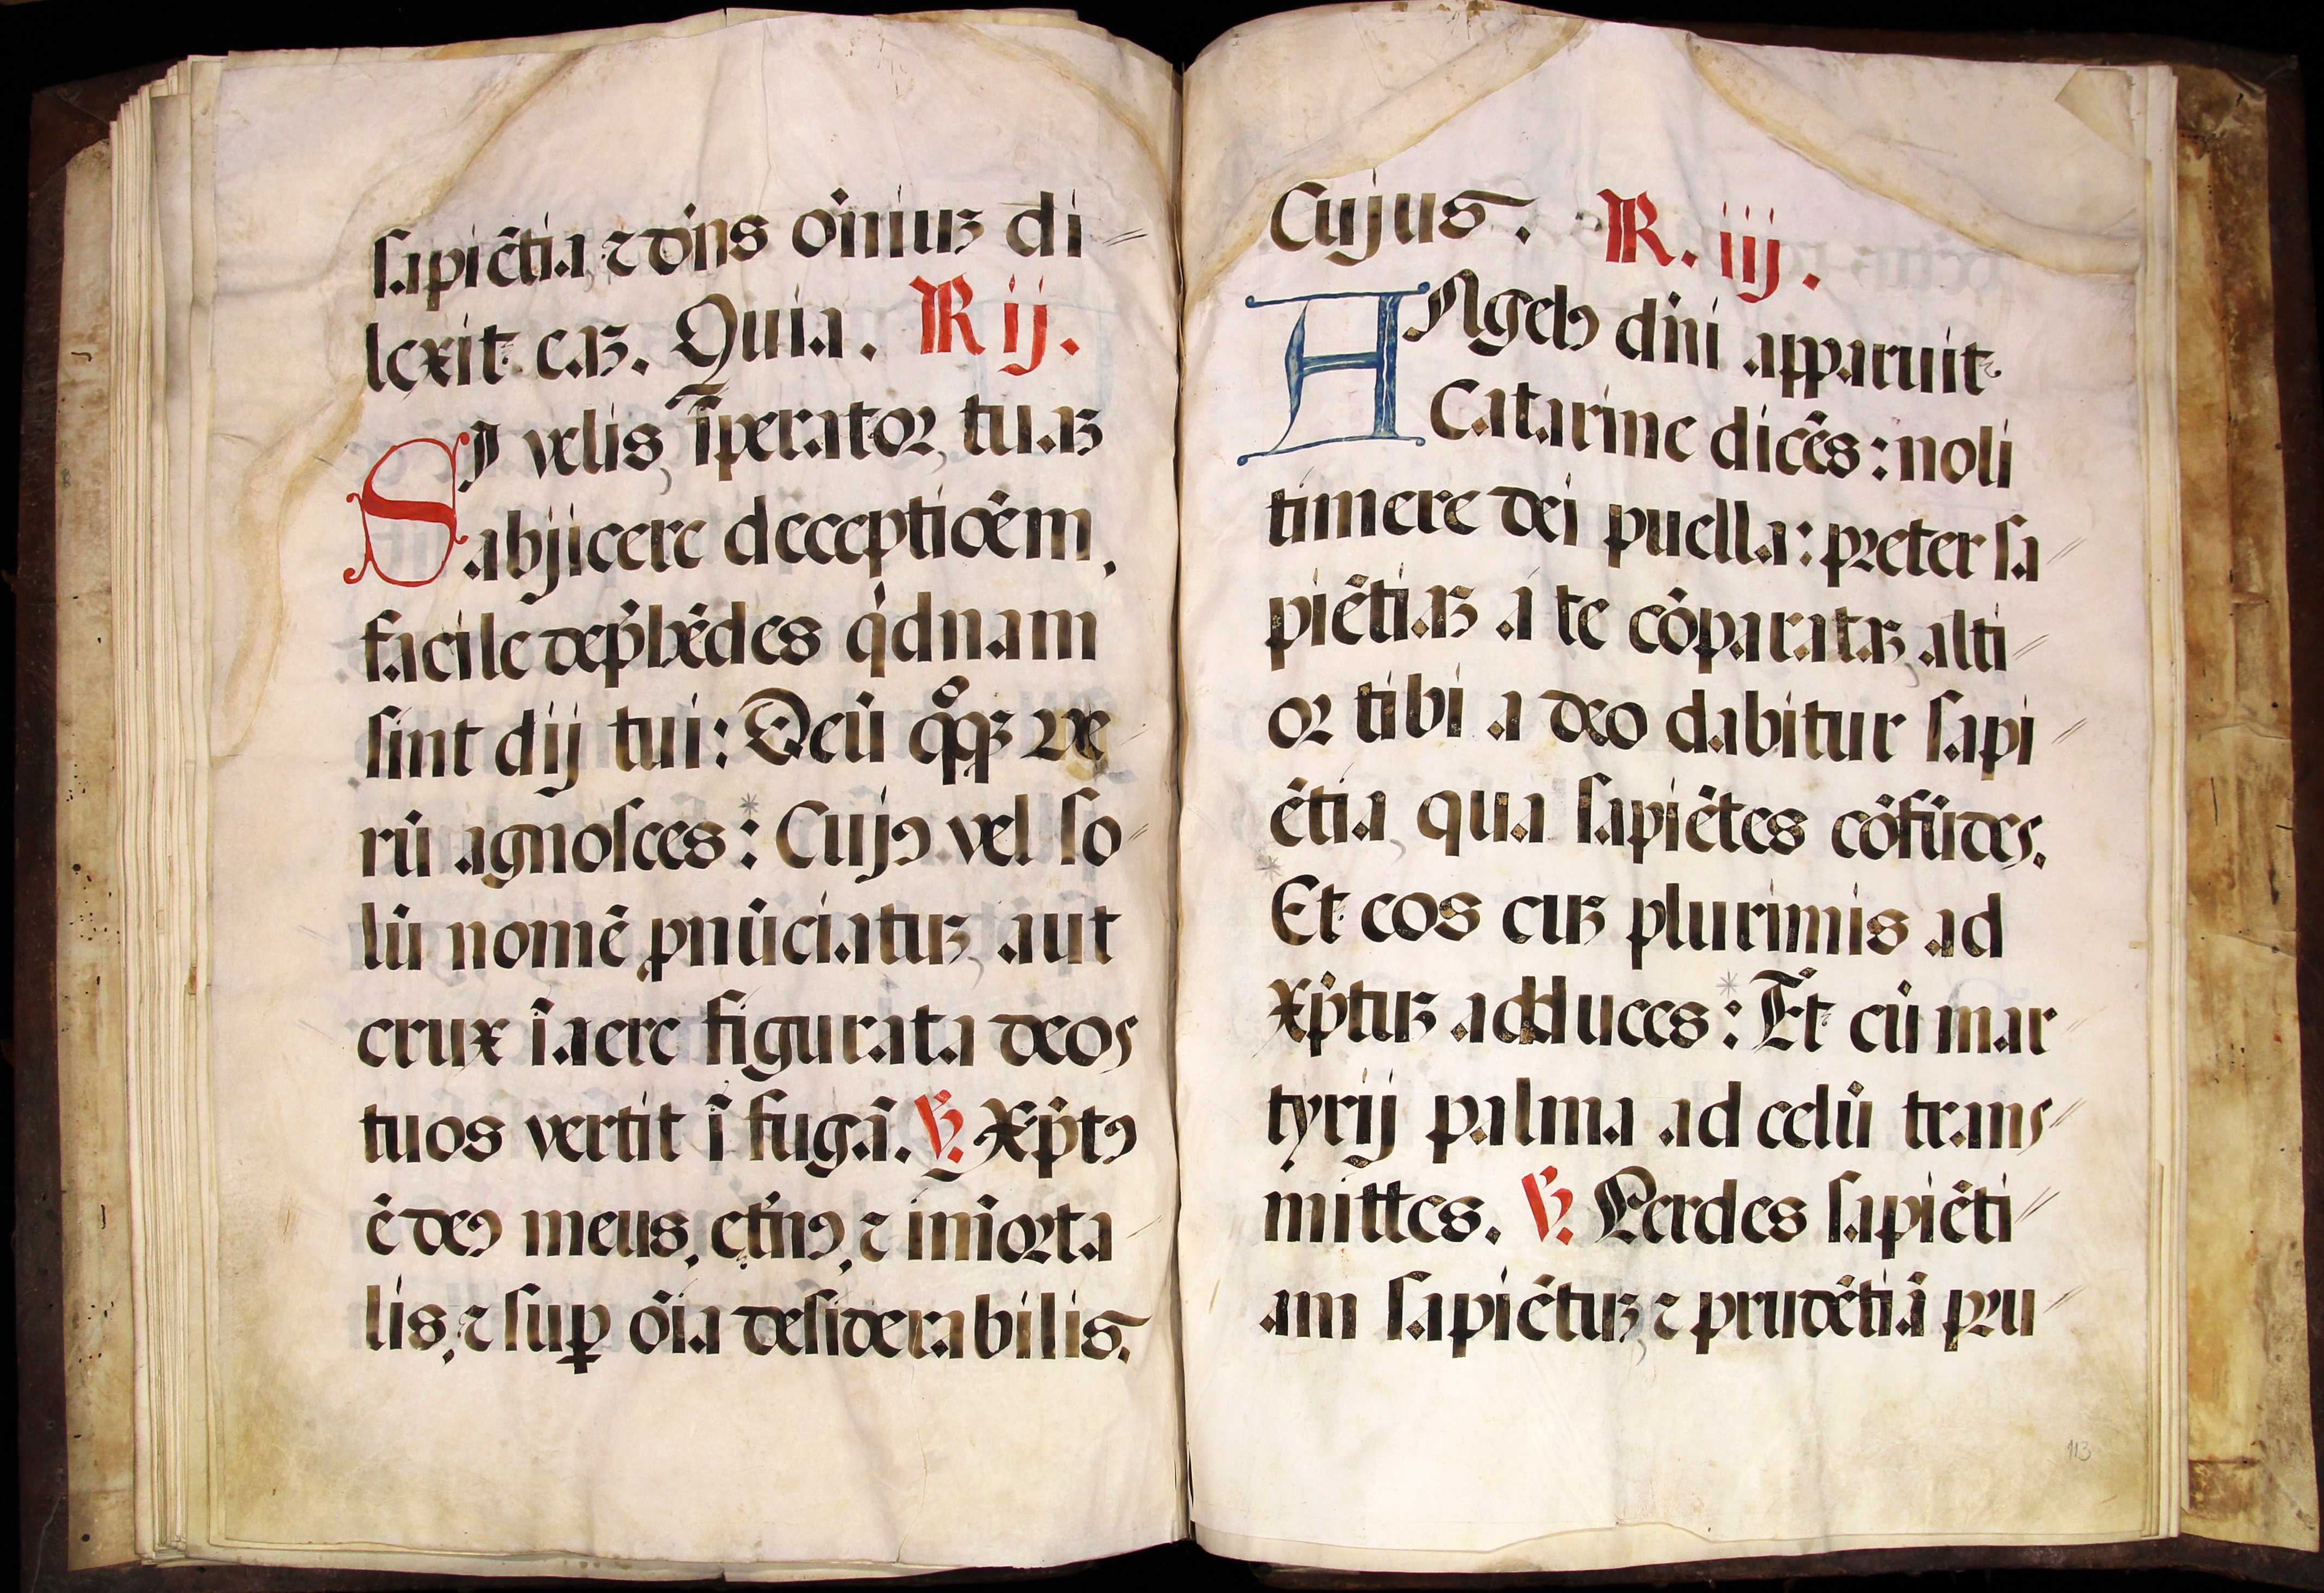 sapiẽtia, ⁊ dñs om̃iuꝫ di=
lexit eaꝫ. Quia. R ij.
SI velis, ĩperator, tuaꝫ
abjicere deceptiõem,
facile dep̃hẽdes q̇dnam
sint dij tui: Deũ qͦqꝫ ve
rũ agnosces *: Cujꝰ vel so=
lũ nomẽ ꝓnũciatuꝫ, aut
crux ĩ aere figurata deos
tuos vertit ĩ fugã. ℣. Xp̃tꝰ
ẽ deꝰ meus, et̃nꝰ, ⁊ im̃orta=
lis, ⁊ suꝑ oĩa desiderabilis.
Cujus. R. iij.
ANgelꝰ dñi apparuit
Catarine dicẽs: noli
timere dei puella: preter sa=
piẽtiaꝫ a te cõparataꝫ, alti=
or tibi a deo dabitur sapi=
ẽtia, qua sapiẽtes cõfũdes.
* Et eos cuꝫ plurimis ad
Xp̃tuꝫ adduces *: Et cũ mar=
tyrij palma ad celũ trans=
mittes. ℣. Perdes sapiẽti=
am sapiẽtuꝫ, ⁊ prudẽtiã pru=
113